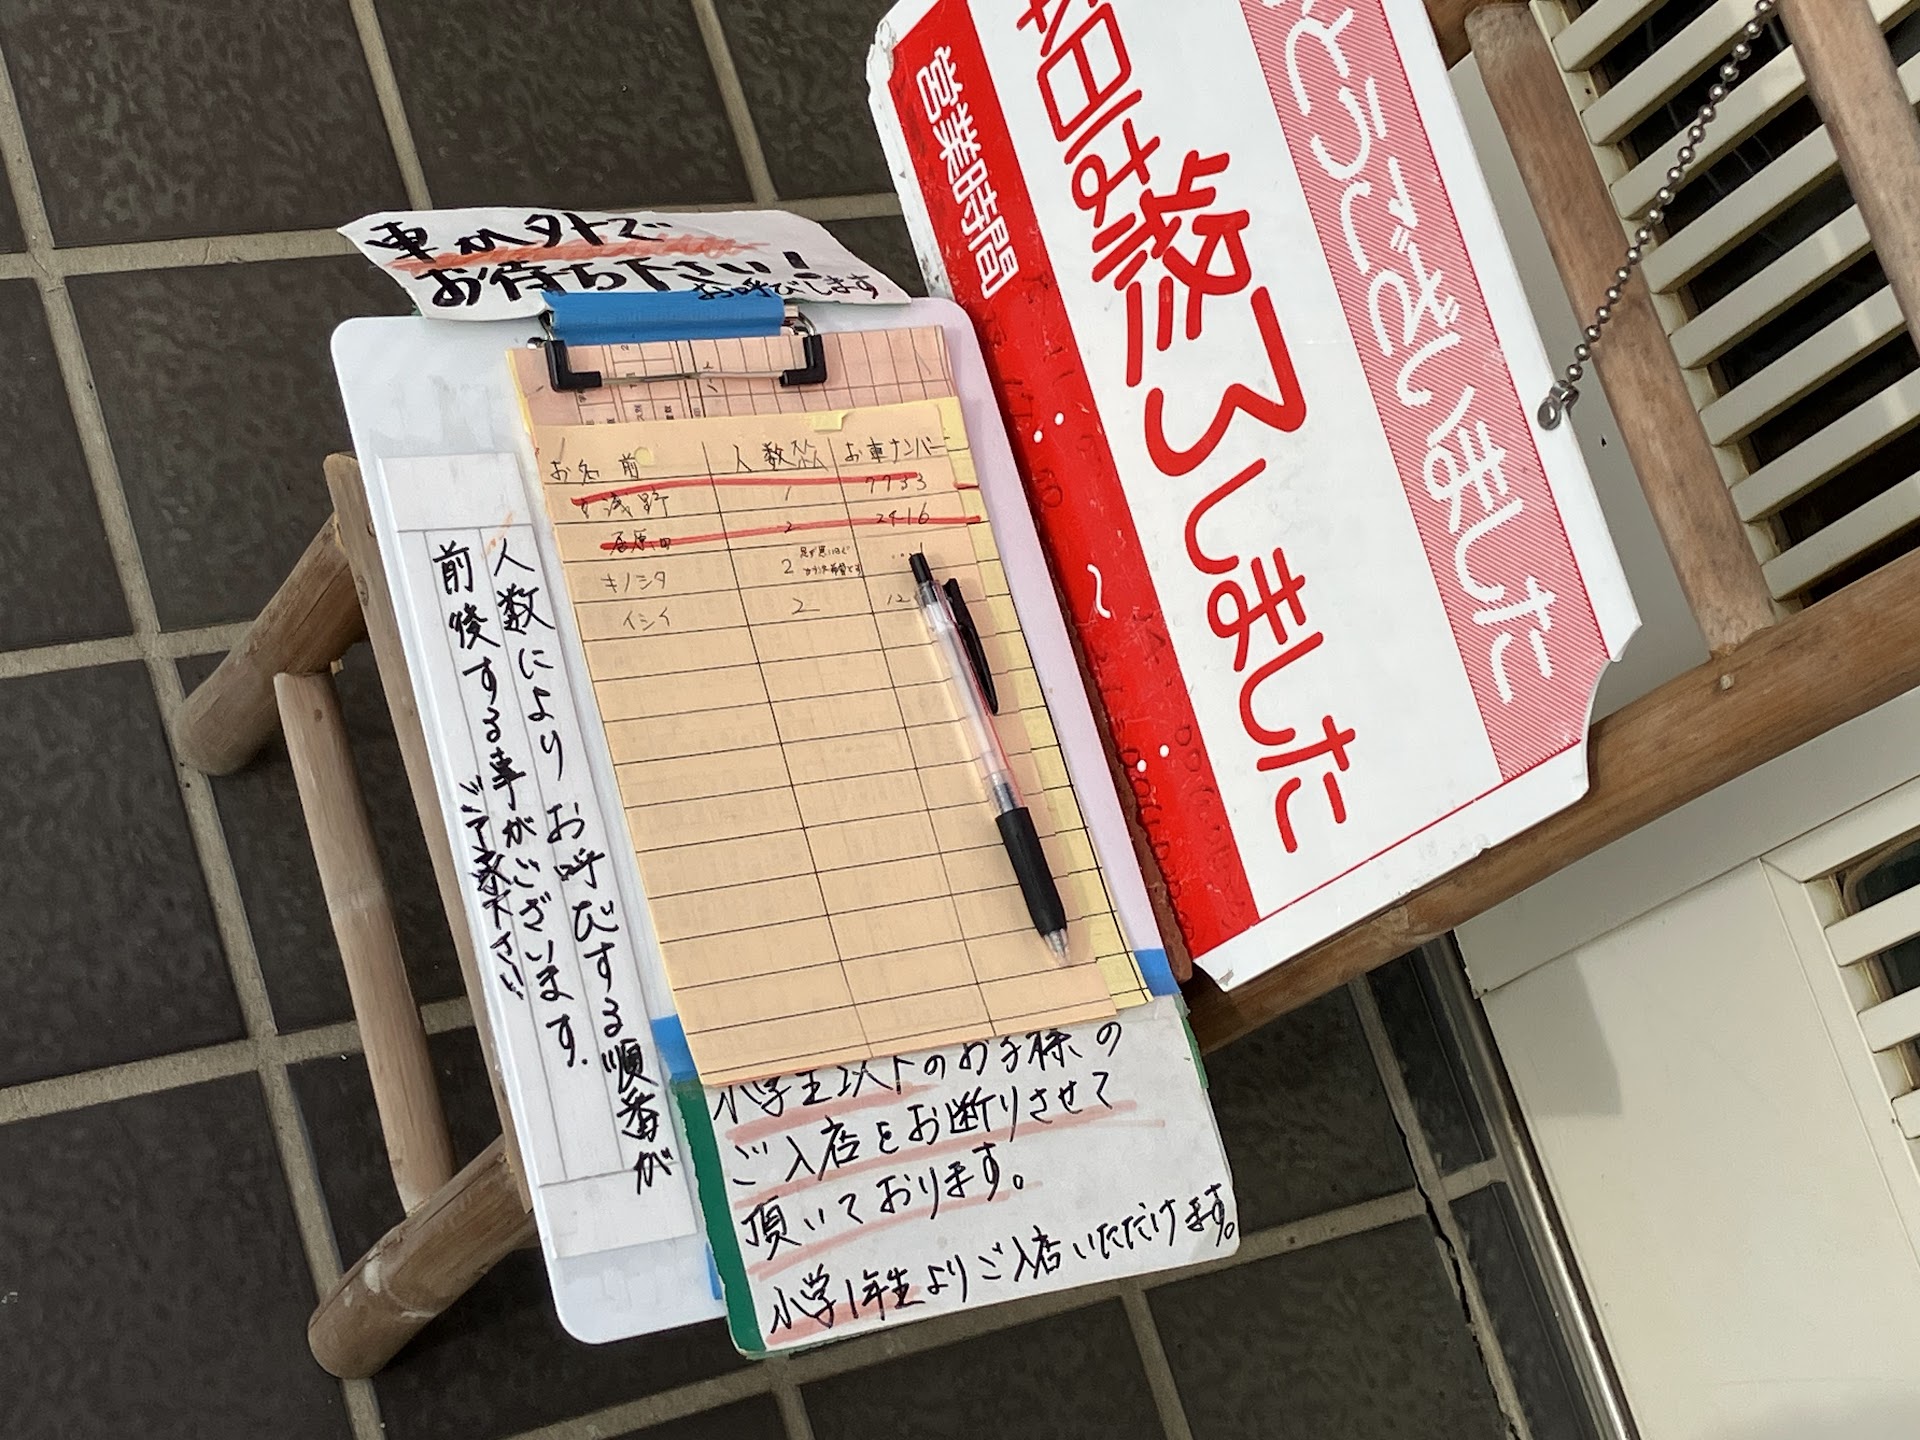 車か外で
お待ち下さい!
お呼びします
お名前 人数 お車ナンバー
浅野 1 7733
2 2416
キノシタ 2
イシイ 2
人数によりお呼びする順番が
前後する事がございます。
ご了承下さい
小学生以下のお子様の
ご入店をお断りさせて
頂いております。
小学1年生よりご入店いただけます。
とうございました
本日は終了しました
営業時間